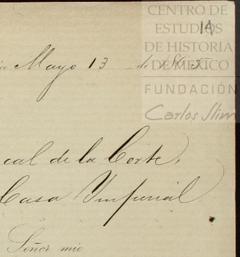 CENTRO DE
ESTUDIOS
DE HISTORIA
DE MÉXICO
FUNDACIÓN
Carlos Slim
14
Mayo 13 de
cal de la Corte,
Casa Imperial
Señor mio